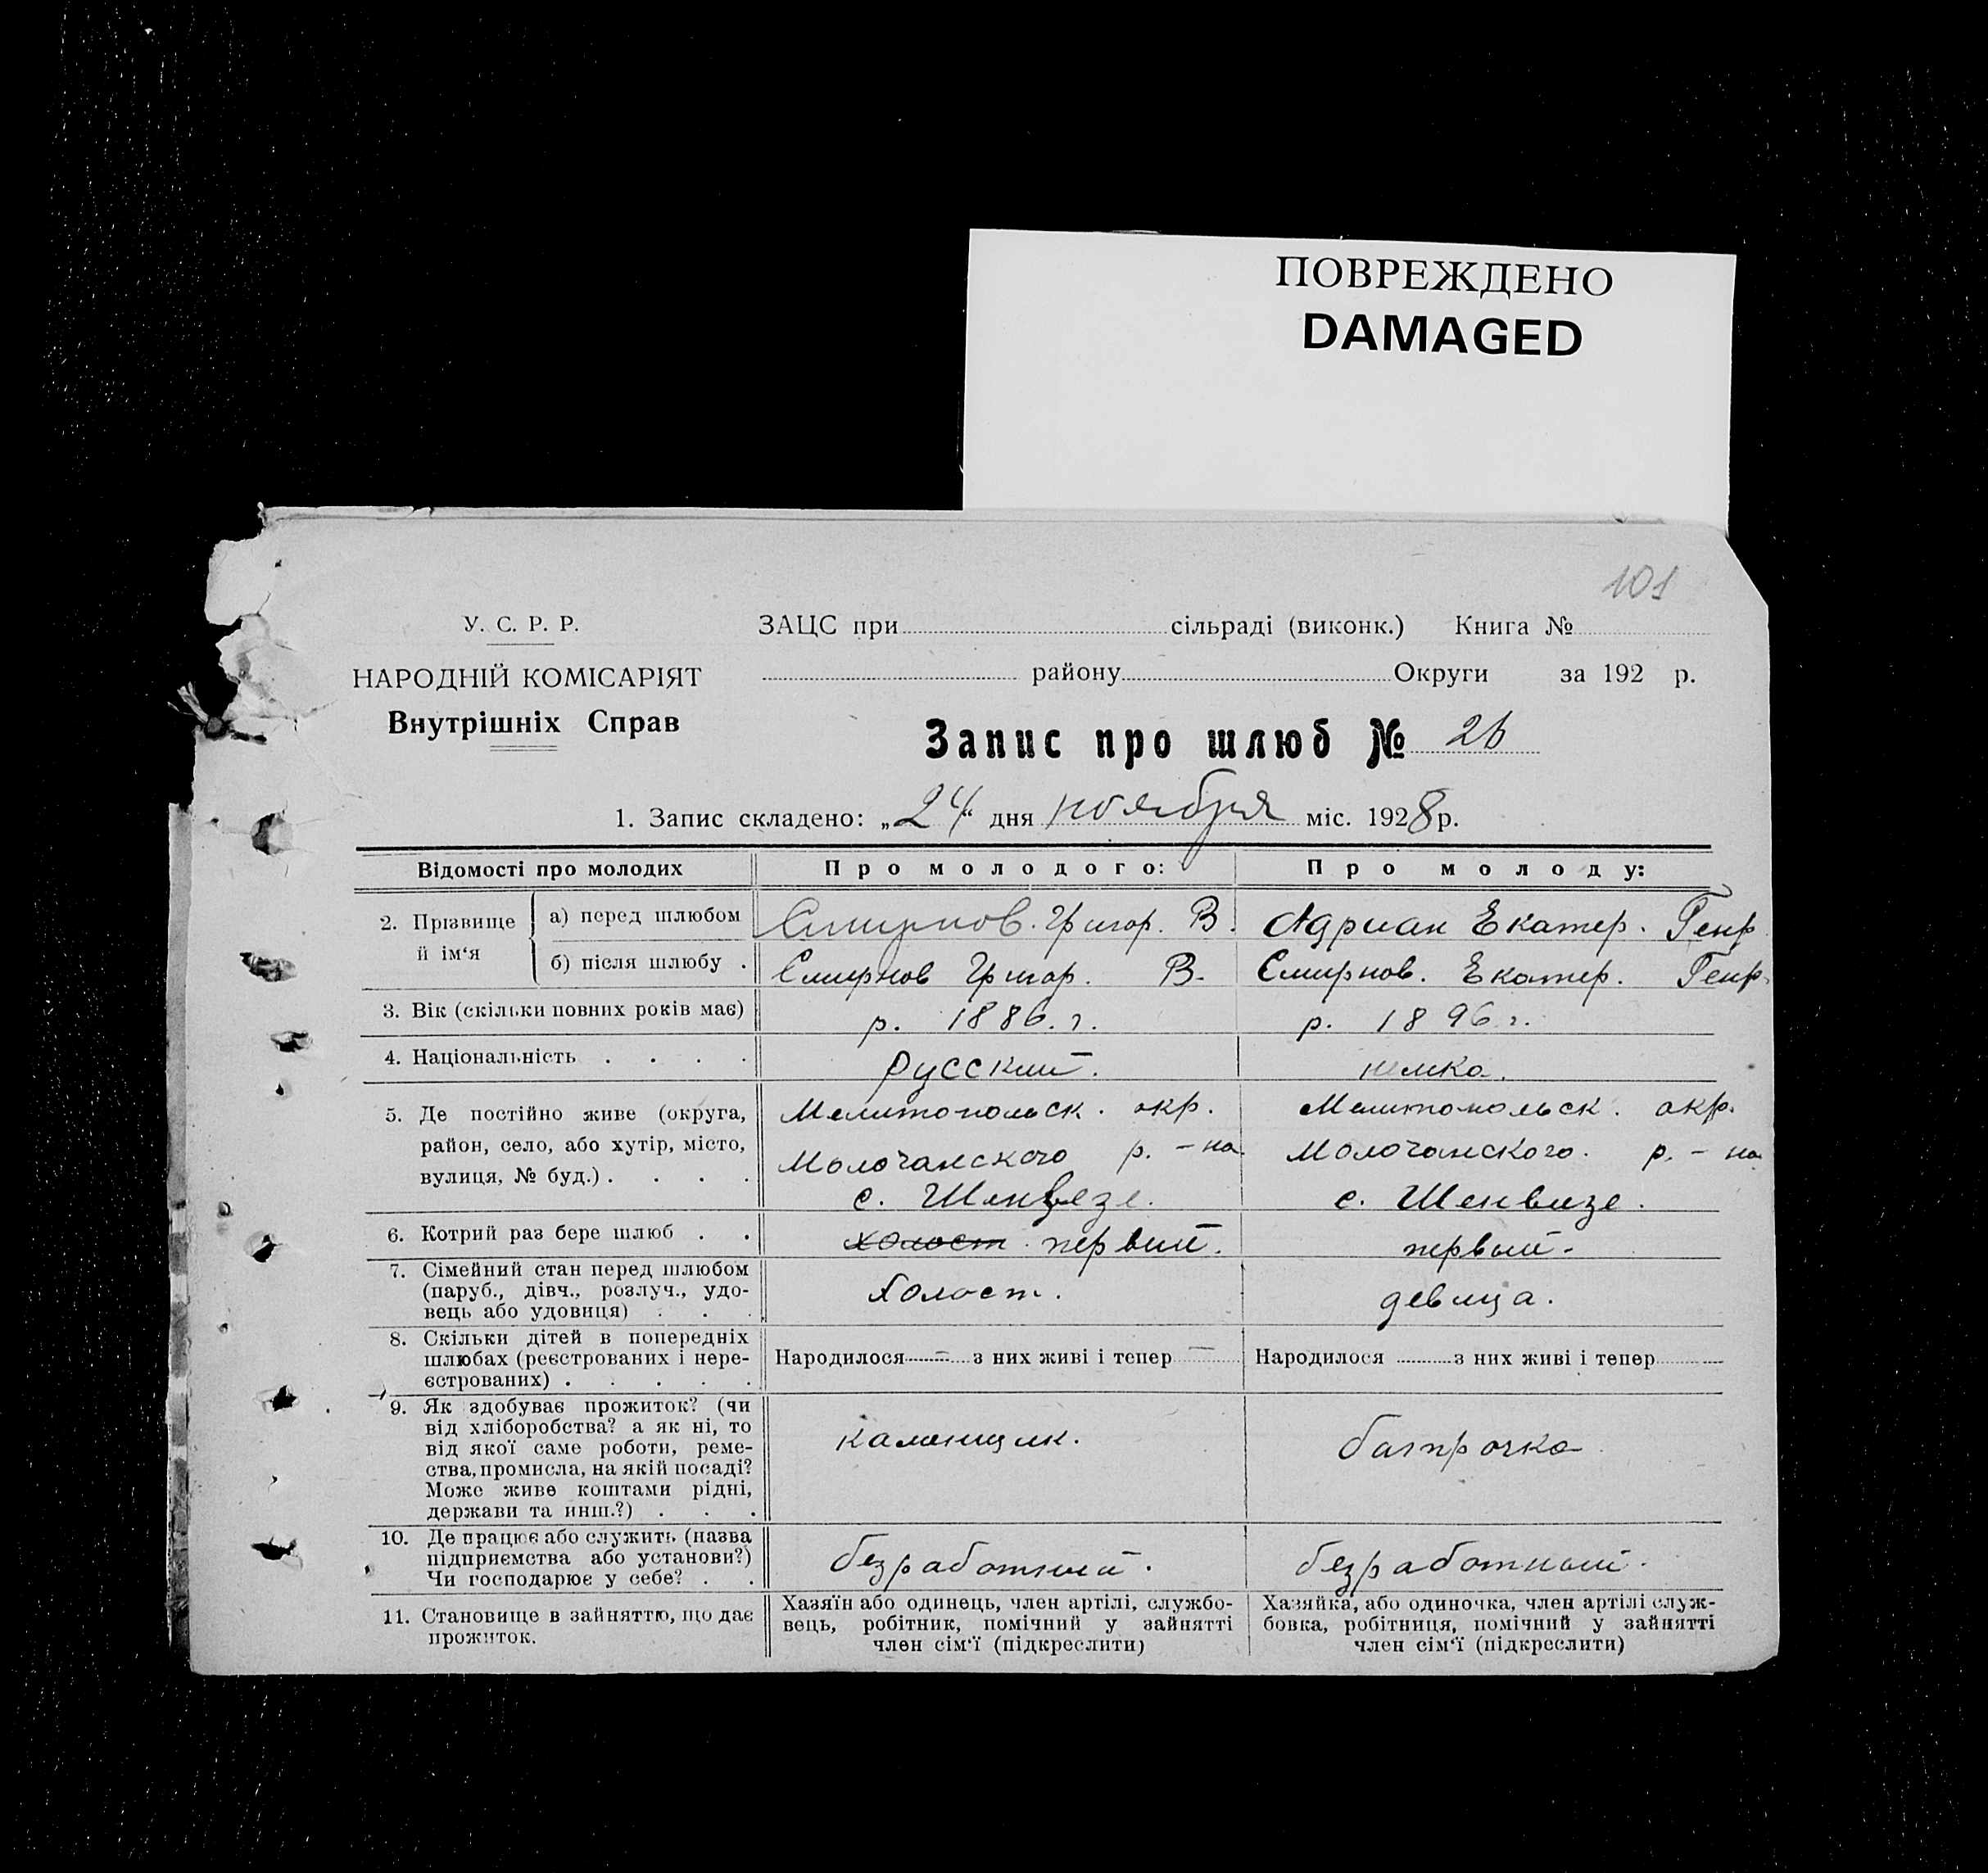 ПОВРЕЖДЕНО
DAMAGED
101
У. С. Р. Р.
НАРОДНІЙ КОМІСАРІЯТ
Внутрішніх Справ
ЗАЦС при сільраді (виконк.) Книга №
району Округи за 192 р.
Запис про шлюб № 26
1. Запис складено: „24“ дня ноября міс. 1928 р.
Відомості про молодих
Про молодого:
Про молоду:
2. Прізвище й ім‘я
а) перед шлюбом
Смирнов. Григор. В.
Адриан Екатер. Генр
б) після шлюбу .
Смирнов Григор. В.
Смирнов. Екатер. Генр.
3. Вік (скільки повних років має)
р. 1886. г.
р. 1896 г.
4. Національність . . . .
русский.
немка.
5. Де постійно живе (округа,
район, село, або хутір, місто,
вулиця, № буд.) . . . .
Мелитопольск. окр.
Молочанского р. - на.
с. Шенвезе.
Мелитопольск. окр.
Молочанского. р. - на
с. Шенвизе.
6. Котрий раз бере шлюб . .
холост первий.
первый.
7. Сімейний стан перед шлюбом
(паруб., дівч., розлуч., удо-
вець або удовиця) . . .
Холост.
девица.
8. Скільки дітей в попередніх
шлюбах (реєстрованих і нере-
єстрованих) . . . . .
Народилося — з них живі і тепер —
Народилося з них живі і тепер —
9. Як здобуває прожиток? (чи
від хліборобства? а як ні, то
від якої саме роботи, реме-
ства, промисла, на якій посаді?
Може живе коштами рідні,
держави та инш.?) . . .
каменщик.
батрачка
10. Де працює або служить (назва
підприємства або установи?)
Чи господарює у себе? . .
безработный.
безработный.
11. Становище в зайняттю, що дає
прожиток.
Хазяїн або одинець, член артілі, службо-
вець, робітник, помічний у зайнятті
член сім‘ї (підкреслити)
Хазяйка, або одиночка, член артілі служ-
бовка, робітниця, помічний у зайнятті
член сім‘ї (підкреслити)